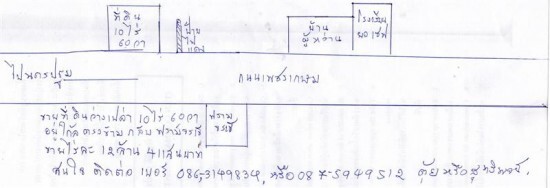 ที่ดิน
10ไร่
60วา
บ้าน
ผู้หว่าน
โรงเรียน
ยอแซฟ
ไปนครปฐม
ถนนเพชรเกษม
ขายที่ดินว่างเปล่า 10ไร่ 60วา
อยู่ใกล้ ตรงข้าม กับ ฟาร์มจระเข้
ฟาร์ม
จระเข้
ขายไร่ละ 12ล้าน 4แสนบาท
สนใจ ติดต่อ เบอร์ 086-3149834, หรือ 087-5949512 ตุ๋ย หรือ